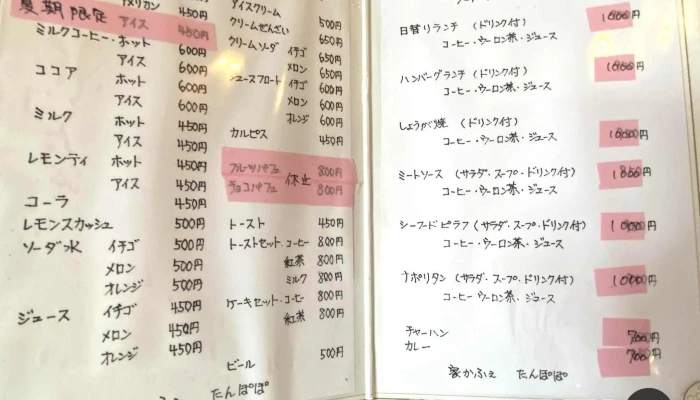 アメリカン 450円
夏期限定 アイス 450円
ミルクコーヒー・ホット 600円
アイス 600円
ココア ホット 600円
アイス 600円
ミルク ホット 450円
アイス 450円
レモンティ ホット 450円
アイス 450円
コーラ 450円
レモンスカッシュ 500円
ソーダ水 イチゴ 500円
メロン 500円
オレンジ 500円
ジュース イチゴ 450円
メロン 450円
オレンジ 450円
アイスクリーム
クリームぜんざい 500円
クリームソーダ イチゴ 650円
メロン 650円
ジュースフロート イチゴ 600円
メロン 600円
オレンジ 600円
カルピス 450円
フルーツパフェ 休止 800円
チョコパフェ 800円
トースト 450円
トーストセット・コーヒー 800円
紅茶 800円
ミルク 800円
ケーキセット・コーヒー 800円
紅茶 800円
ビール 500円
たんぽぽ
日替りランチ (ドリンク付) 円
コーヒー・ウーロン茶・ジュース
ハンバーグランチ (ドリンク付) 円
コーヒー・ウーロン茶・ジュース
しょうが焼 (ドリンク付) 円
コーヒー・ウーロン茶・ジュース
ミートソース (サラダ・スープ・ドリンク付) 円
コーヒー・ウーロン茶・ジュース
シーフードピラフ (サラダ・スープ・ドリンク付) 円
コーヒー・ウーロン茶・ジュース
ナポリタン (サラダ・スープ・ドリンク付) 円
コーヒー・ウーロン茶・ジュース
チャーハン 700円
カレー 700円
家かふぇ たんぽぽ